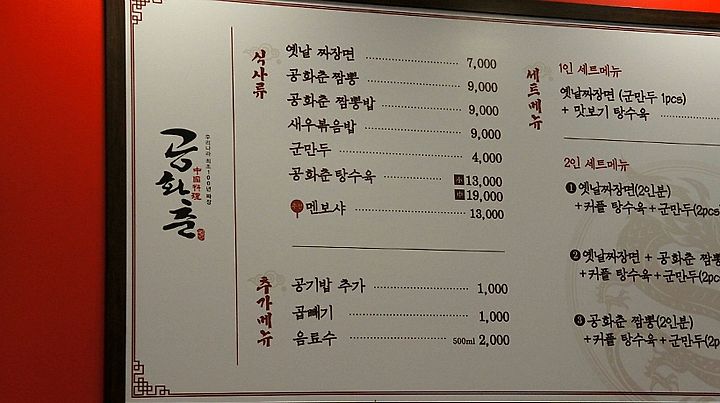 공화춘
우리나라 최초 100년 짜장
中國料理
식사류
옛날 짜장면 7,000
공화춘 짬뽕 9,000
공화춘 짬뽕밥 9,000
새우볶음밥 9,000
군만두 4,000
공화춘 탕수육 小 13,000
19,000
멘보샤 13,000
추가메뉴
공기밥 추가 1,000
곱빼기 1,000
음료수 500ml 2,000
세트메뉴
1인 세트메뉴
옛날짜장면 (군만두 1pcs)
+ 맛보기 탕수육
2인 세트메뉴
❶옛날짜장면(2인분)
+커플 탕수육+군만두(2pcs
❷옛날짜장면 + 공화춘 짬뽕
+커플 탕수육+군만두(2pc
❸공화춘 짬뽕(2인분)
+커플 탕수육+군만두(2p